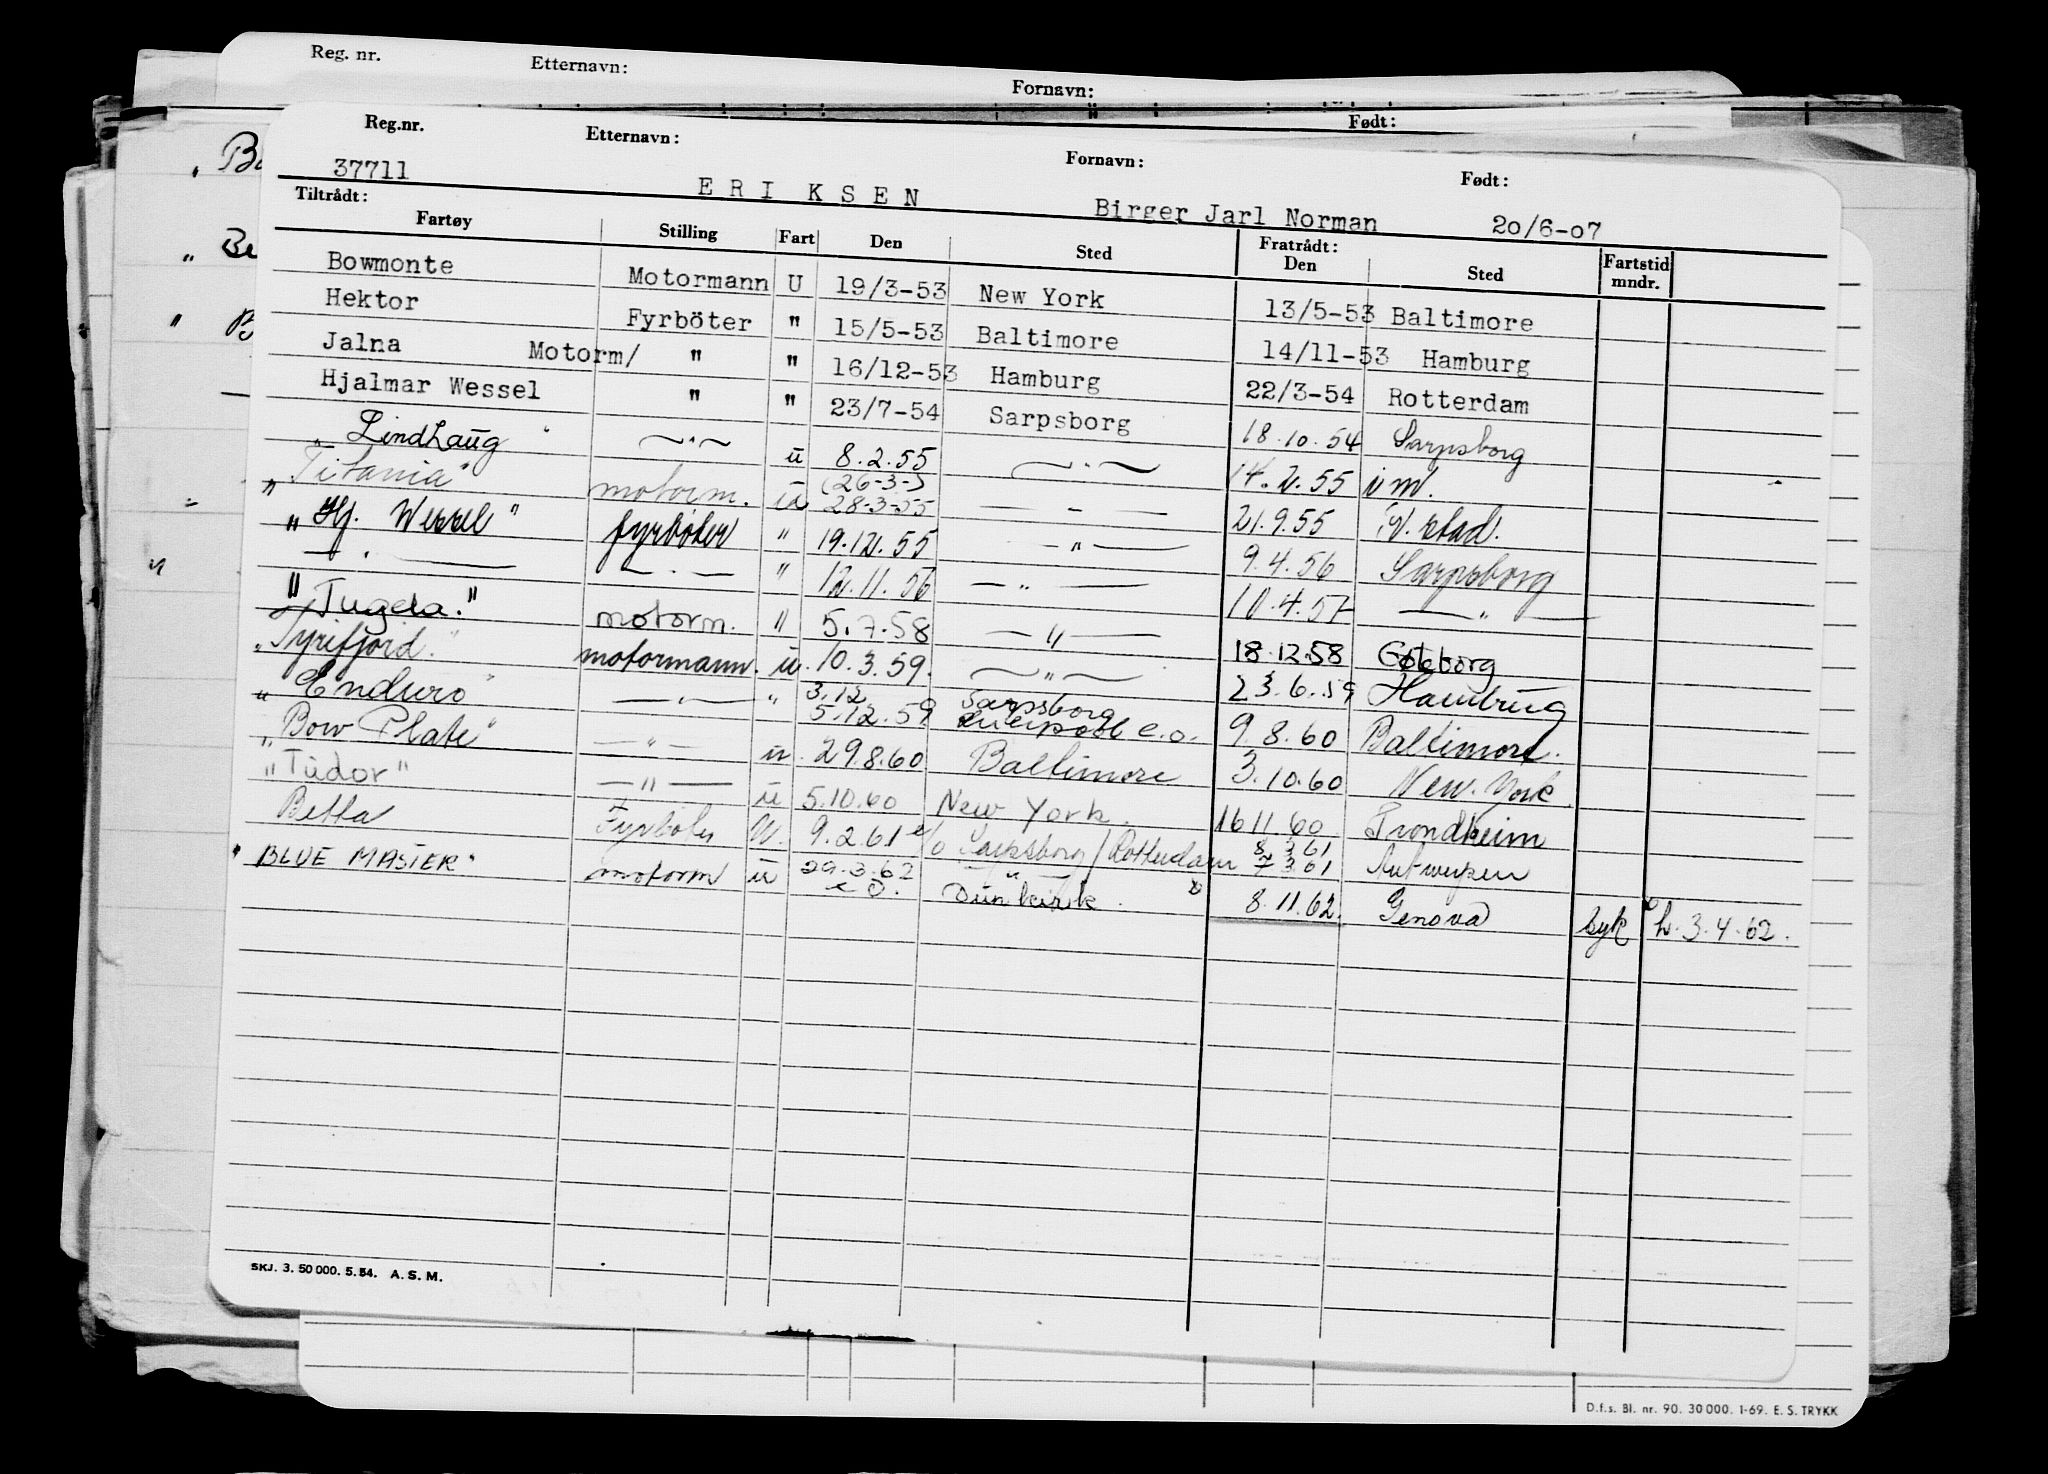 Reg. nr. Etternavn: Fornavn:
Født:
Reg.nr. Etternavn: Fornavn: Født:
37711 ERIKSEN Birger Jarl Norman 20/6-07
Tiltrådt: Fratrådt:
Fartøy Stilling Fart Den Sted Den Sted Fartstid mndr.
Bowmonte Motormann U 19/3-53 New York 13/5-53 Baltimore
Hektor Fyrböter " 15/5-53 Baltimore 14/11-53 Hamburg
Jalna Motorm/ " " 16/12-53 Hamburg 22/3-54 Rotterdam
Hjalmar Wessel " " 23/7-54 Sarpsborg 18.10.54 Sarpsborg
"Lindhaug" —"— u 8.2.55 —"— 14.2.55 i m.
"Titania" motorm. u (26-3-) 28-3-55 — - — 21.9.55 Fr. stad.
"Hj. Wessel" fyrbøter " 19.12.55 —"— 9.4.56 Sarpsborg
—"— —"— " 12.11.56 —"— 10.4.57 —"—
"Tugela." motorm. " 5.7.58 —"— 18.12.58 Gøteborg
"Tyrifjord." motormann. u. 10.3.59. —"— 23.6.59 Hamburg
"Enduro" —"— " 3.12 5.12.59 Sarpsborg Liverpool e.o. 9.8.60 Baltimore.
"Bow Plate" —"— u. 29.8.60 Baltimore 3.10.60 New. York
"Tudor" —"— u 5.10.60 New York. 16.11.60 Trondheim
Betta Fyrbøter U. 9.2.61 e/o Sarpsborg/Rotterdam 8.3.61 7.3.61 Antwerpen
"BLUE MASTER" motorm u 29.3.62 e o. —"— Dunkirk. 8.11.62. Genova syk h. 3.4.62.
SKJ. 3. 50 000. 5. 54. A. S. M.
D.f.s. Bl. nr. 90. 30 000. 1-69. E. S. TRYKK